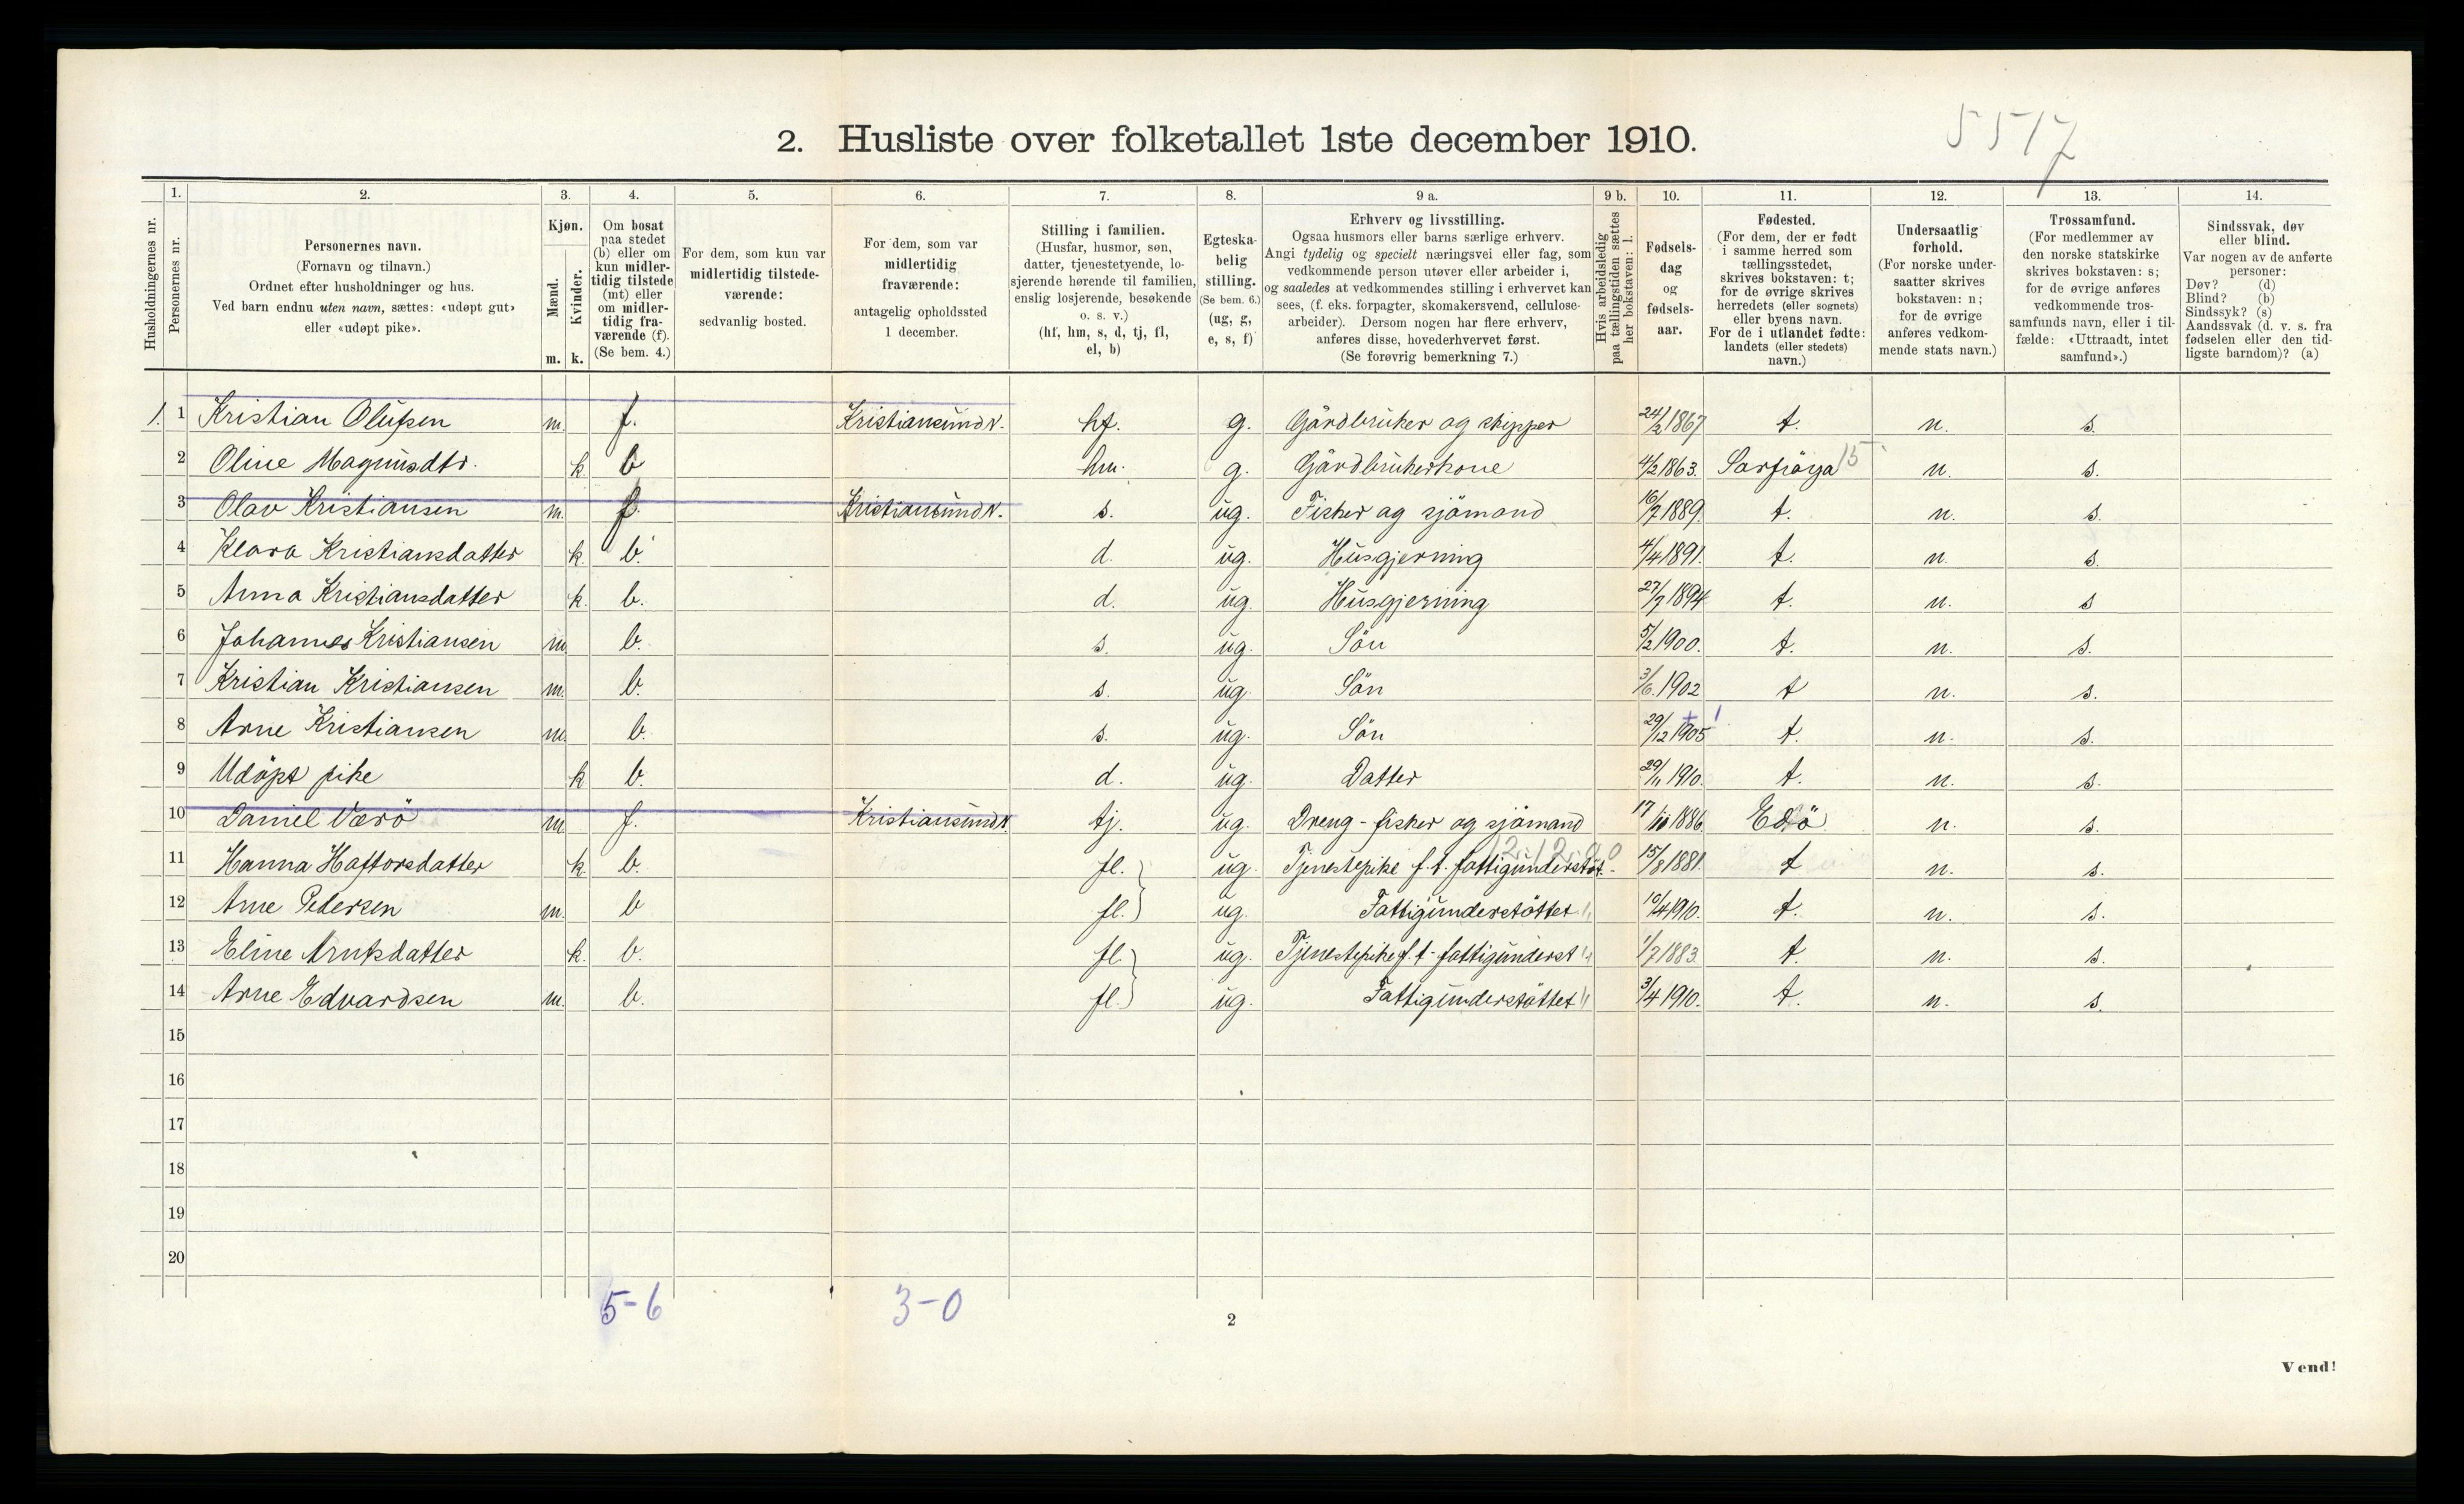 5517
2. Husliste over folketallet 1ste december 1910.
Husholdningernes nr.
1. Personernes nr.
2. Personernes navn.
(Fornavn og tilnavn.)
Ordnet efter husholdninger og hus.
Ved barn endnu uten navn, sættes: «udøpt gut»
eller «udøpt pike».
3. Kjøn.
Mænd. m.
Kvinder. k.
4. Om bosat
paa stedet
(b) eller om
kun midler-
tidig tilstede
(mt) eller
om midler-
tidig fra-
værende (f).
(Se bem. 4.)
5. For dem, som kun var
midlertidig tilstede-
værende:
sedvanlig bosted.
6. For dem, som var
midlertidig
fraværende:
antagelig opholdssted
1 december.
7. Stilling i familien.
(Husfar, husmor, søn,
datter, tjenestetyende, lo-
sjerende hørende til familien,
enslig losjerende, besøkende
o. s. v.)
(hf, hm, s, d, tj, fl,
el, b)
8. Egteska-
belig
stilling.
(Se bem. 6.)
(ug, g,
e, s, f)
9 a. Erhverv og livsstilling.
Ogsaa husmors eller barns særlige erhverv.
Angi tydelig og specielt næringsvei eller fag, som
vedkommende person utøver eller arbeider i,
og saaledes at vedkommendes stilling i erhvervet kan
sees, (f. eks. forpagter, skomakersvend, cellulose-
arbeider). Dersom nogen har flere erhverv,
anføres disse, hovederhvervet først.
(Se forøvrig bemerkning 7.)
9 b. Hvis arbeidsledig
paa tællingstiden sættes
her bokstaven: l.
10. Fødsels-
dag
og
fødsels-
aar.
11. Fødested.
(For dem, der er født
i samme herred som
tællingsstedet,
skrives bokstaven: t;
for de øvrige skrives
herredets (eller sognets)
eller byens navn.
For de i utlandet fødte:
landets (eller stedets)
navn.)
12. Undersaatlig
forhold.
(For norske under-
saatter skrives
bokstaven: n;
for de øvrige
anføres vedkom-
mende stats navn.)
13. Trossamfund.
(For medlemmer av
den norske statskirke
skrives bokstaven: s;
for de øvrige anføres
vedkommende tros-
samfunds navn, eller i til-
fælde: «Uttraadt, intet
samfund».)
14. Sindssvak, døv
eller blind.
Var nogen av de anførte
personer:
Døv? (d)
Blind? (b)
Sindssyk? (s)
Aandssvak (d. v. s. fra
fødselen eller den tid-
ligste barndom)? (a)
1. 1 Kristian Olufsen m. f. Kristiansund N. hf. g. Gårdbruker og skipper 24/2 1867 t. n. s.
2 Oline Magnusdtr. k b hm. g. Gårdbrukerkone 4/2 1863. 15 n. s.
3 Olav Kristiansen m. f. Kristiansund N. s. ug. Fisker og sjömand 16/7 1889. t. n. s.
4 Klara Kristiansdatter k. b. d. ug. Husgjerning 4/4 1891. t. n. s.
5 Anna Kristiansdatter k. b. d. ug. Husgjerning 27/7 1894 t. n. s
6 Johannes Kristiansen m. b. s. ug. Sön 5/2 1900. t. n. s.
7 Kristian Kristiansen m. b. s. ug. Sön 3/6. 1902 t n. s.
8 Arne Kristiansen m. b. s. ug. Sön 29/12 1905 t. n. s.
9 Udöpt pike k b. d. ug. Datter 29/11 1910. t. n. s.
10 Daniel Værö m. f. Kristiansund N. tj. ug. Dreng - fisker og sjömand 17/10 1886. Edö n. s.
11 Hanna Haftorsdatter k. b. fl. ug. Tjenestepike f. t. fattigunderstöt. 15/8 1881. t n. s.
12 Arne Pedersen m. b fl. ug. Fattigunderstöttet 10/4 1910. t. n. s.
13 Eline Arntsdatter k. b. fl. ug. Tjenestepike f. t. fattigunderst 1/7 1883. t. n. s.
14 Arne Edvardsen m. b. fl. ug. Fattigunderstöttet 3/4 1910. t. n. s.
15
16
17
18
19
20
5-6 3-0
2
Vend!